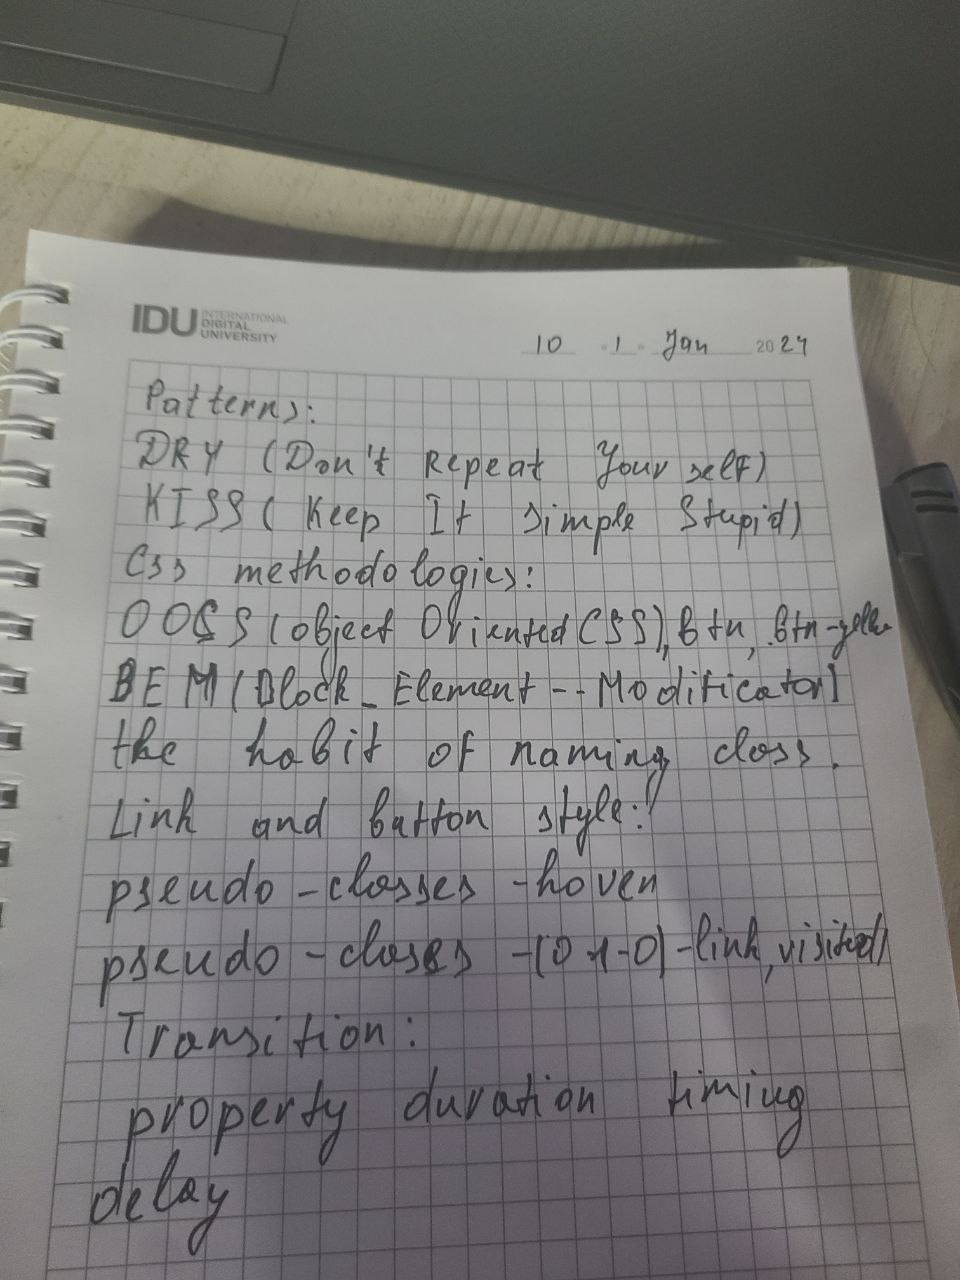 IDU INTERNATIONAL
DIGITAL
UNIVERSITY
10 . 1 . Jan 2024
Patterns:
DRY (Don't Repeat Your self)
KISS (Keep It Simple Stupid)
Css methodologies:
OOCSS (object Oriented CSS), btn, .btn-yellow
BEM (Block_Element--Modificator)
the habit of naming class.
Link and button style:
pseudo-classes -hover
pseudo-classes -(0-1-0)-link, visited)
Transition:
property duration timing
delay